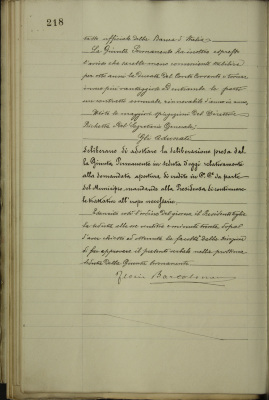 218
tasso ufficiale della Banca d'Italia
La Giunta Permanente ha inoltre espresso
l'avviso che sarebbe meno conveniente stabilire
per otto anni la durata del Conto Corrente e trovar
invece più vantaggioso di estenderlo, in parte
un contratto annuale, rinnovabile d'anno in anno,
Udite le maggiori spiegazioni del Direttore
del Segretario Generale;
Gli Adunati
deliberano di adottare la deliberazione presa dal
la Giunta Permanente in seduta d'oggi relativamente
alla domandata apertura di credito in da parte
del Municipio, mandando alla Presidenza di continuare
le trattative all'uopo necessarie.
Esaurito così l'ordine del giorno il Presidente toglie
la seduta alle ore e minuti trenta, dopo
d'aver chiesto ed ottenuto la facoltà dalla
di far approvare il presente verbale nella prossima
seduta della Giunta Permanente.